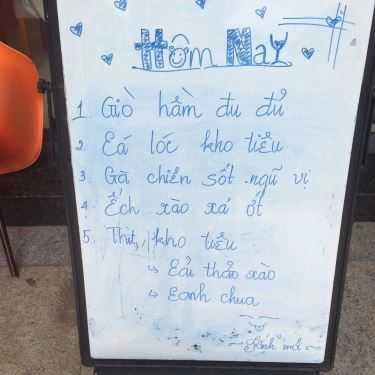 Hôm Nay
1 Giò hầm đu đủ
2. Cá lóc kho tiêu
3. Gà chiên sốt ngũ vị
4. Ếch xào xả ớt
5. Thịt kho tiêu
↳ Cải thảo xào
↳ Canh chua